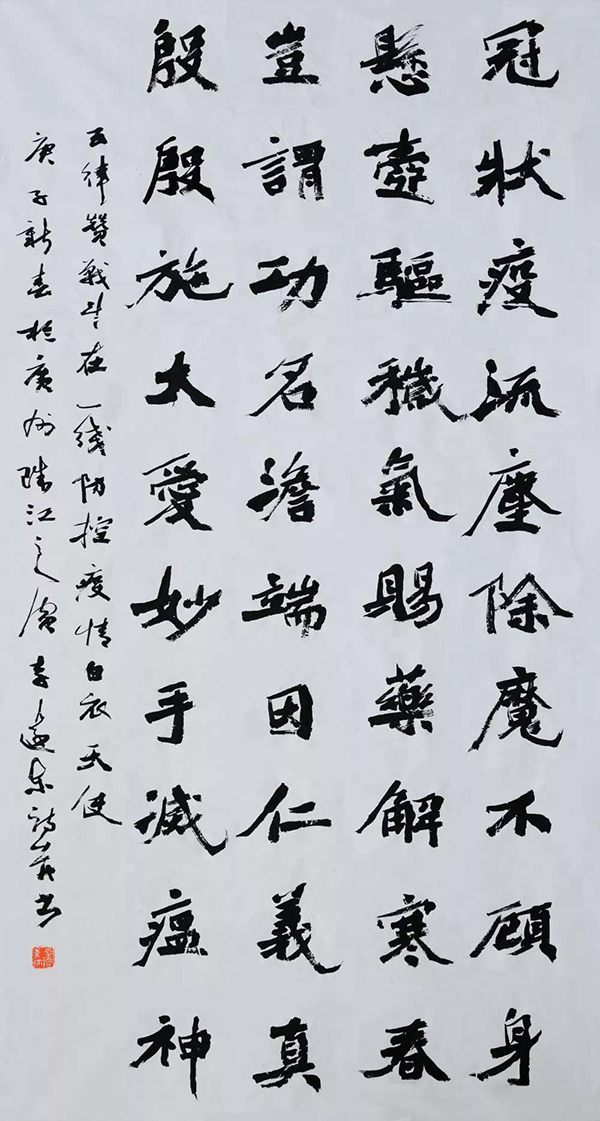 冠狀疫流塵除魔不顧身
懸壺驅穢氣賜藥解寒春
豈謂功名澹端因仁義真
殷殷施大愛妙手滅瘟神
五律贊戰鬥在一线防控疫情白衣天使
庚子新春於廣州珠江之濱李遠東詩並书